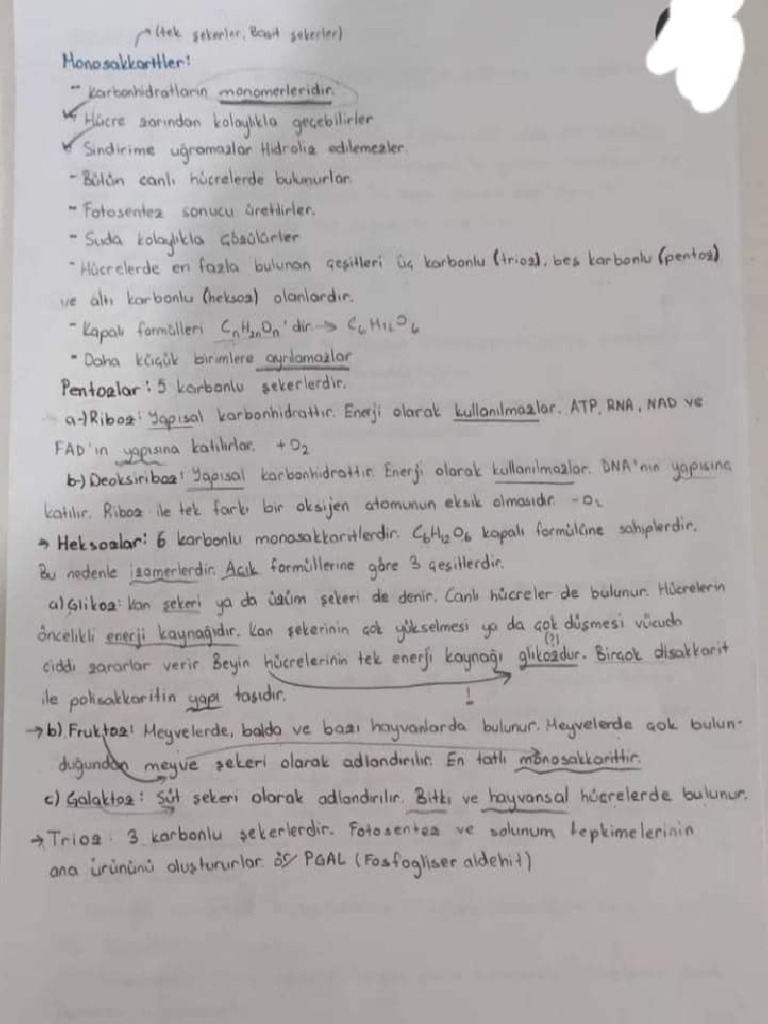 (tek şekerler, Basit şekerler)
Monosakkaritler:
- Karbonhidratların monomerleridir.
Hücre zarından kolaylıkla geçebilirler
Sindirime uğramazlar Hidroliz edilemezler.
- Bütün canlı hücrelerde bulunurlar.
- Fotosentez sonucu üretilirler.
- Suda kolaylıkla çözülürler
- Hücrelerde en fazla bulunan çeşitleri üç karbonlu (trioz), beş karbonlu (pentoz)
ve altı karbonlu (heksoz) olanlardır.
- Kapalı formülleri CnH2nOn'dir → C6H12O6
- Daha küçük birimlere ayrılamazlar
Pentozlar: 5 karbonlu şekerlerdir.
a-) Riboz: Yapısal karbonhidrattır. Enerji olarak kullanılmazlar. ATP, RNA, NAD ve
FAD'ın yapısına katılırlar. +O2
b-) Deoksiriboz: Yapısal karbonhidrattır. Enerji olarak kullanılmazlar. DNA'nın yapısına
katılır. Riboz ile tek farkı bir oksijen atomunun eksik olmasıdır. -O2
→ Heksozlar: 6 karbonlu monosakkaritlerdir. C6H12O6 kapalı formülüne sahiplerdir.
Bu nedenle izomerlerdir. Açık formüllerine göre 3 çeşillerdir.
a) Glikoz: Kan şekeri ya da üzüm şekeri de denir. Canlı hücreler de bulunur. Hücrelerin
öncelikli enerji kaynağıdır. Kan şekerinin çok yükselmesi ya da çok düşmesi vücuda
ciddi zararlar verir Beyin hücrelerinin tek enerji kaynağı glikozdur. (?) Birçok disakkarit
ile polisakkaritin yapı taşıdır. !
→ b) Fruktoz: Meyvelerde, balda ve bazı hayvanlarda bulunur. Meyvelerde çok bulun-
duğundan meyve şekeri olarak adlandırılır. En tatlı monosakkarittir.
c) Galaktoz: Süt şekeri olarak adlandırılır. Bitki ve hayvansal hücrelerde bulunur.
→ Trioz: 3 karbonlu şekerlerdir. Fotosentez ve solunum tepkimelerinin
ana ürününü oluştururlar. ör/ PGAL (Fosfogliser aldehit)